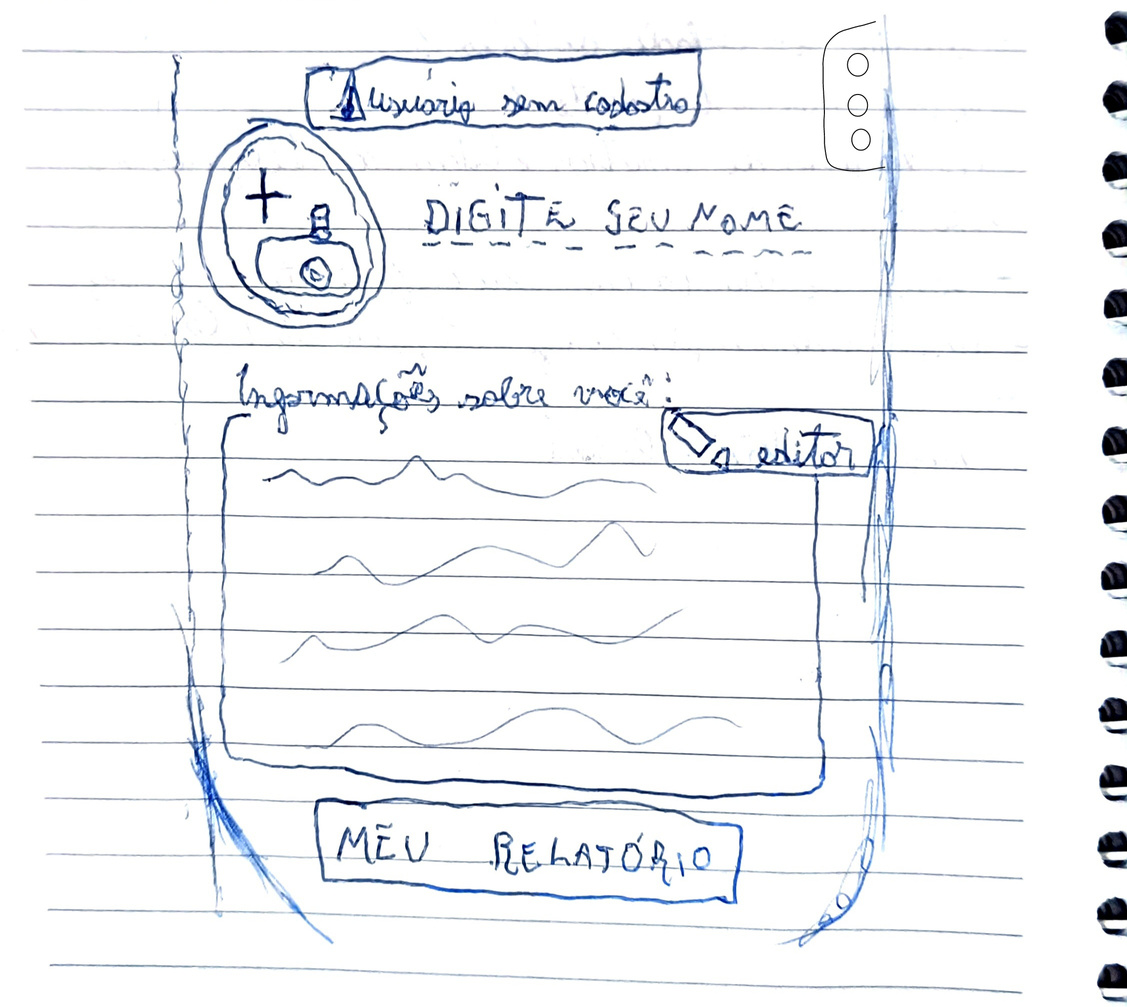 Usuário sem cadastro
DIGITE SEU NOME
Informações sobre você:
editar
MEU RELATÓRIO